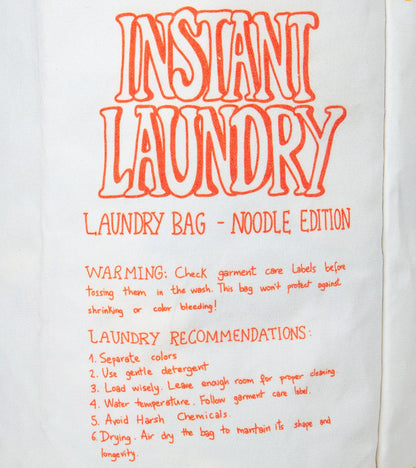 INSTANT
LAUNDRY
LAUNDRY BAG - NOODLE EDITION
WARMING: Check garment care Labels before
tossing them in the wash. This bag won't protect against
shrinking or color bleeding!
LAUNDRY RECOMMENDATIONS:
1. Separate colors
2. Use gentle detergent
3. Load wisely. Leave enough room for proper cleaning.
4. Water temperature. Follow garment care label.
5. Avoid Harsh Chemicals.
6. Drying. Air dry the bag to mantain its shape and
longevity.